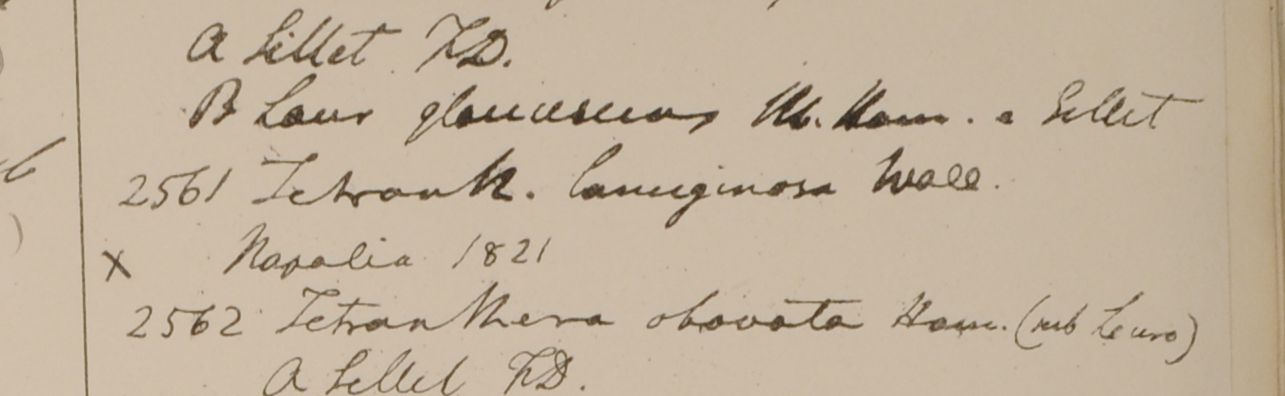 A Sillet F.D.
B Laur glaucescens Hb. Ham. e Sillet
2561 Tetranth. lanuginosa Wall.
x Napalia 1821
2562 Tetranthera obovata Ham. (sub Lauro)
A Sillet F.D.